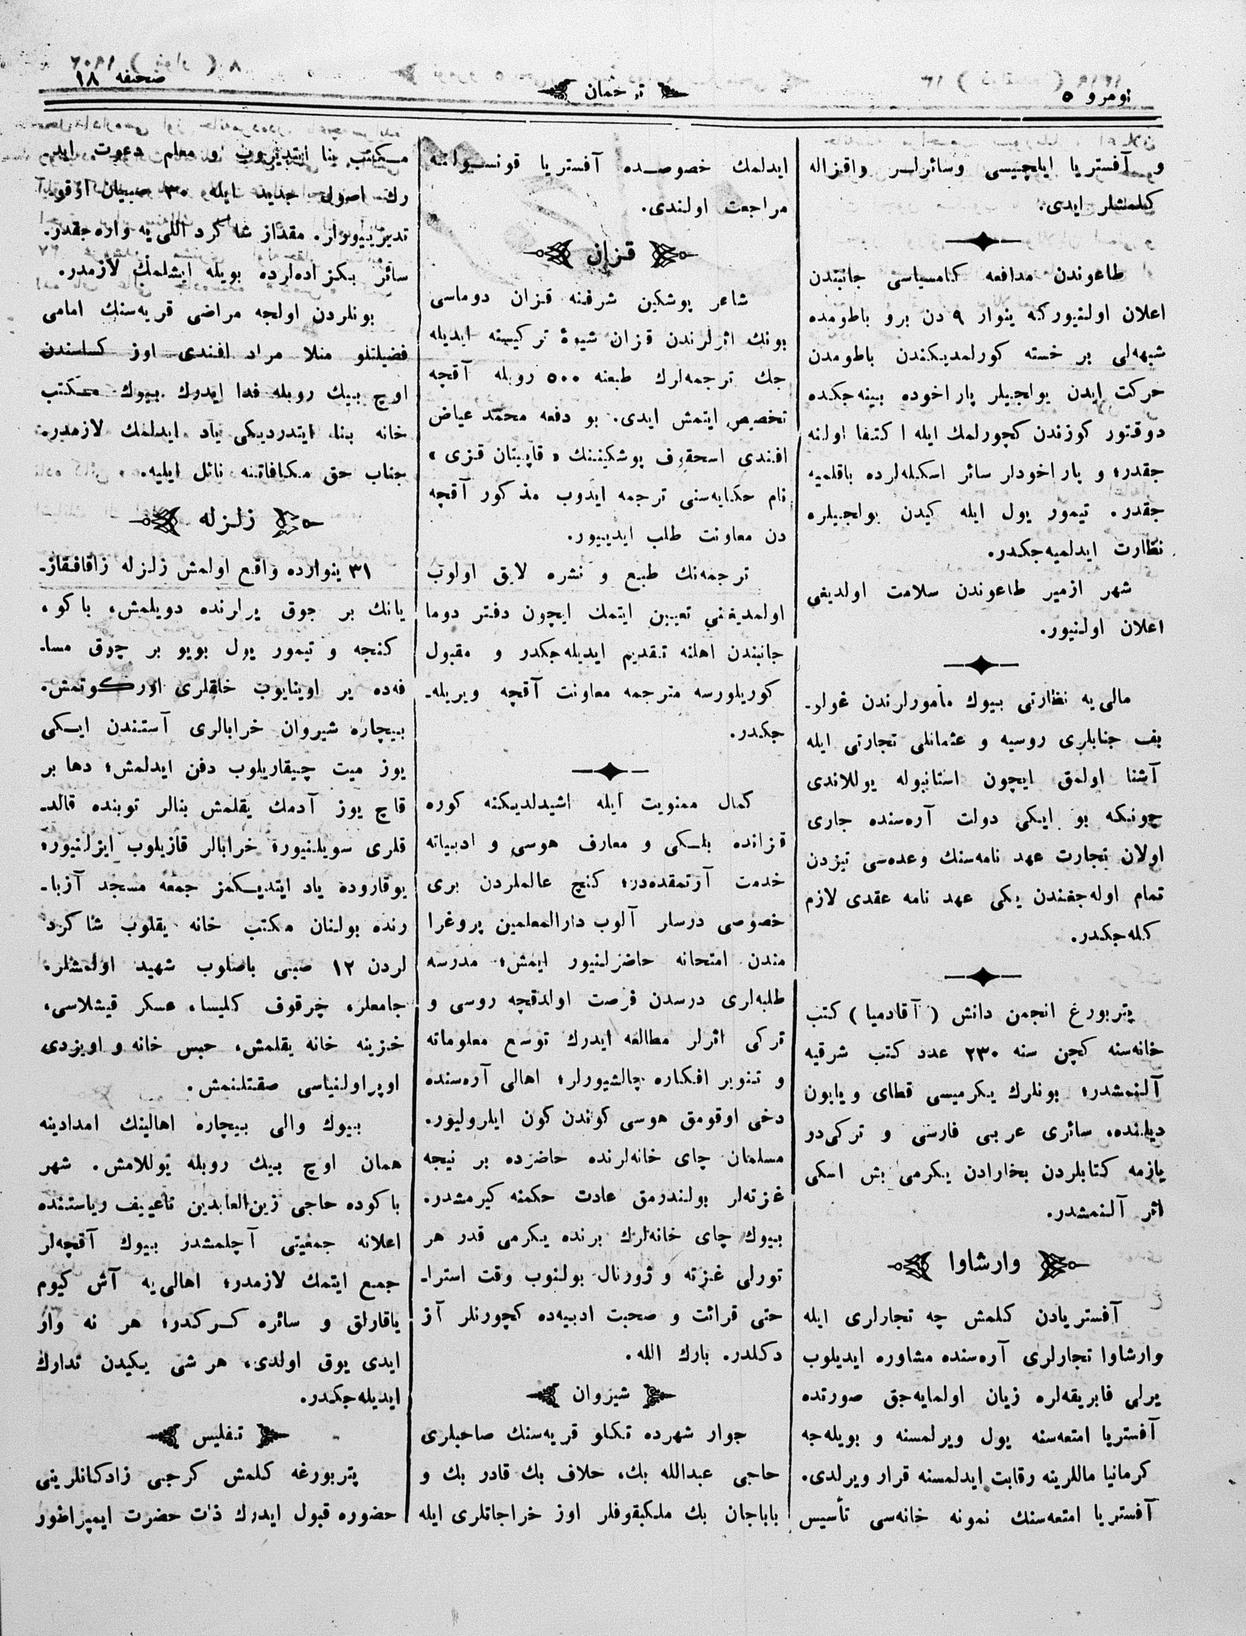 نومرو ٥
ترجمان
صحیفه ١٨
و آفستریا ایلچیسی وسائرلر واقزاله
کلمشلر ایدی.
طاعوندن مدافعه کامسیاسی جانبندن
اعلان اولنیورکه ینوار ٩ دن برو باطومده
شبهه‌لی بر خسته کورلمدیکندن باطومدن
حرکت ایدن یولجیلر پاراخوده بینه‌جکده
دوقتور کوزندن کچورلمك ایله اکتفا اولنه
جقدر؛ و پاراخودلر سائر اسکله‌لرده باقلمیه
جقدر. تیمور یول ایله کیدن یولجیلره
نظارت ایدلمیه‌جکدر.
شهر ازمیر طاعوندن سلامت اولدیغی
اعلان اولنیور.
مالی‌یه نظارتی بیوك مأمورلرندن غولو-
بف جنابلری روسیه و عثمانلی تجارتی ایله
آشنا اولمق ایچون استانبوله یوللاندی
چونکه بو ایکی دولت آره‌سنده جاری
اولان تجارت عهد نامه‌سنك وعده‌سی تیزدن
تمام اوله‌جغندن یکی عهد نامه عقدی لازم
کله‌جکدر.
پتربورغ انجمن دانش (آقادمیا) کتب
خانه‌سنه کچن سنه ٢٣٠ عدد کتب شرقیه
آلنمشدر؛ بونلرك یکرمیسی قطای و یاپون
دیلنده، سائری عربی فارسی و ترکی‌در
یازمه کتابلردن بخارادن یکرمی بش اسکی
اثر آلنمشدر.
وارشاوا
آفستریادن کلمش چه تجارلری ایله
وارشاوا تجارلری آره‌سنده مشاوره ایدیلوب
یرلی فابریقه‌لره زیان اولمایه‌جق صورتده
آفستریا امتعه‌سنه یول ویرلمسنه و بویله‌جه
کرمانیا ماللرینه رقابت ایدلمسنه قرار ویرلدی.
آفستریا امتعه‌سنك نمونه خانه‌سی تأسیس
ایدلمك خصوصده آفستریا قونسولنه
مراجعت اولندی.
قزان
شاعر پوشکین شرفنه قزان دوماسی
بونك اثرلرندن قزان شیوهٔ ترکیسنه ایدیله
جك ترجمه‌لرك طبعنه ٥٠٠ روبله آقچه
تخصیص ایتمش ایدی. بو دفعه محمد عیاض
افندی اسحقوف پوشکینینك «قاپیتان قزی»
نام حکایه‌سنی ترجمه ایدوب مذکور آقچه
دن معاونت طلب ایدییور.
ترجمه‌نك طبع و نشره لایق اولوب
اولمدیغنی تعیین ایتمك ایچون دفتر دوما
جانبندن اهلنه تقدیم ایدیله‌جکدر و مقبول
کوریلورسه مترجمه معاونت آقچه ویریله-
جکدر.
کمال ممنویت ایله اشیدلدیکنه کوره
قزانده بلکی و معارف هوسی و ادبیاته
خدمت آرتمقده‌در؛ کنج عالملردن بری
خصوصی درسلر آلوب دارالمعلمین پروغرا
مندن امتحانه حاضرلنیور ایمش؛ مدرسه
طلبه‌لری درسدن فرصت اولدقچه روسی و
ترکی اثرلر مطالعه ایدرك توسع معلوماته
و تنویر افکاره چالشیورلر؛ اهالی آره‌سنده
دخی اوقومق هوسی کوندن کون ایلرولیور.
مسلمان چای خانه‌لرنده حاضرده بر نیچه
غزته‌لر بولندرمق عادت حکمنه کیرمشدر.
بیوك چای خانه‌لرك برنده یکرمی قدر هر
تورلی غزته و ژورنال بولنوب وقت استرا-
حتی قرائت و صحبت ادبیه‌ده کچورنلر آز
دکلدر. بارك الله.
شیروان
جوار شهرده تکلو قریه‌سنك صاحبلری
حاجی عبدالله بك، خلاف بك قادر بك و
باباجان بك ملکبقوفلر اوز خراجاتلری ایله
مکتب بنا ایتدیروب و معلم دعوت ایده
رك اصول جدید ایله ٣٠ صبیان اوقو-
تدیرییورلر. مقدار شاکرد اللی‌یه واره‌جقدر.
سائر بکزاده‌لرده بویله ایشلمك لازمدر.
بونلردن اولجه مراضی قریه‌سنك امامی
فضیلتلو منلا مراد افندی اوز کسسندن
اوچ بیك روبله فدا ایدرك بیوك مکتب
خانه بنا ایتدردیکی یاد ایدلمك لازمدر.
جناب حق مکافاتنه نائل ایلیه.
زلزله
٣١ ینوارده واقع اولمش زلزله زاقافقاز-
یانك بر چوق یرلرنده دویلمش، باکو،
کنجه و تیمور یول بویو بر چوق مسا-
فه‌ده یر اوینایوب خلقلری اورکوتمش.
بیچاره شیروان خرابالری آستندن ایکی
یوز میت چیقاریلوب دفن ایدلمش؛ دها بر
قاچ یوز آدمك یقلمش بنالر توبنده قالد-
قلری سویلنیور؛ خرابالر قازیلوب ایزلنیور؛
یوقاروده یاد ایتدیکمز جمعه مسجد آزبا-
رنده بولنان مکتب خانه یقلوب شاکرد
لردن ١٢ صبی باصلوب شهید اولمشلر.
جامعلر، چرقوف کلیسا، عسکر قیشلاسی،
خزینه خانه یقلمش، حبس خانه و اویزدی
اوپراولنیاسی صقتلنمش.
بیوك والی بیچاره اهالینك امدادینه
همان اوچ بیك روبله یوللامش. شهر
باکوده حاجی زین‌العابدین تاغییف ریاستنده
اعلانه جمعیتی آچلمشدر بیوك آقچه‌لر
جمع ایتمك لازمدر؛ اهالی‌یه آش کیوم
یاقارلق و سائره کرکدر؛ هر نه وار
ایدی یوق اولدی، هر شی یکیدن تدارك
ایدیله‌جکدر.
تفلیس
پتربورغه کلمش کرجی زادکانلرینی
حضوره قبول ایدرك ذات حضرت ایمپراطور